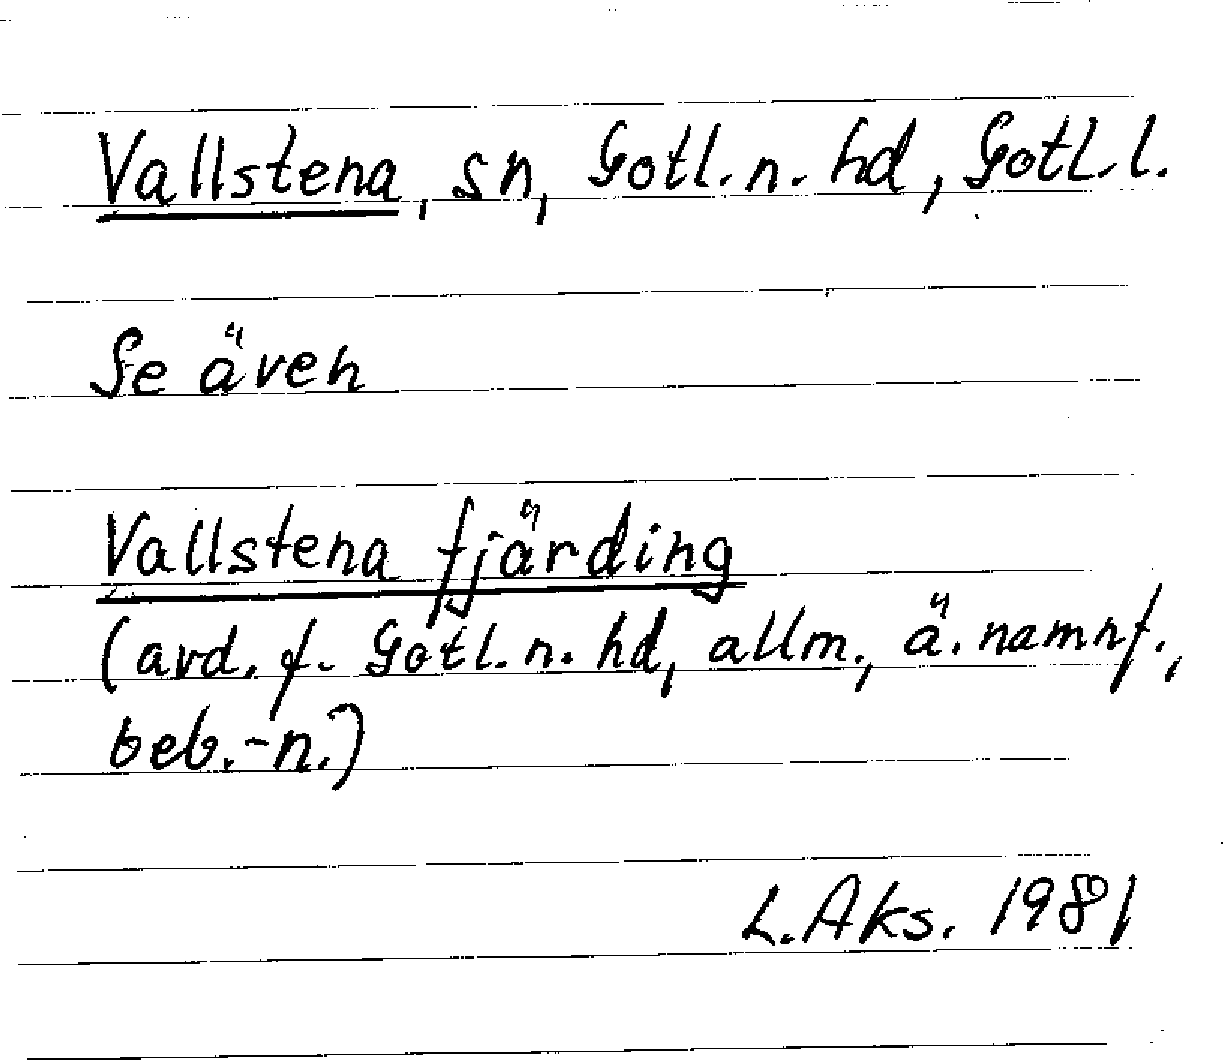 Vallstena, sn, Gotl. n. hd, Gotl. l.
Se även
Vallstena fjärding
(avd. f. Gotl. n. hd, allm., ä. namnf.,
beb.-n.)
L. Aks. 1981